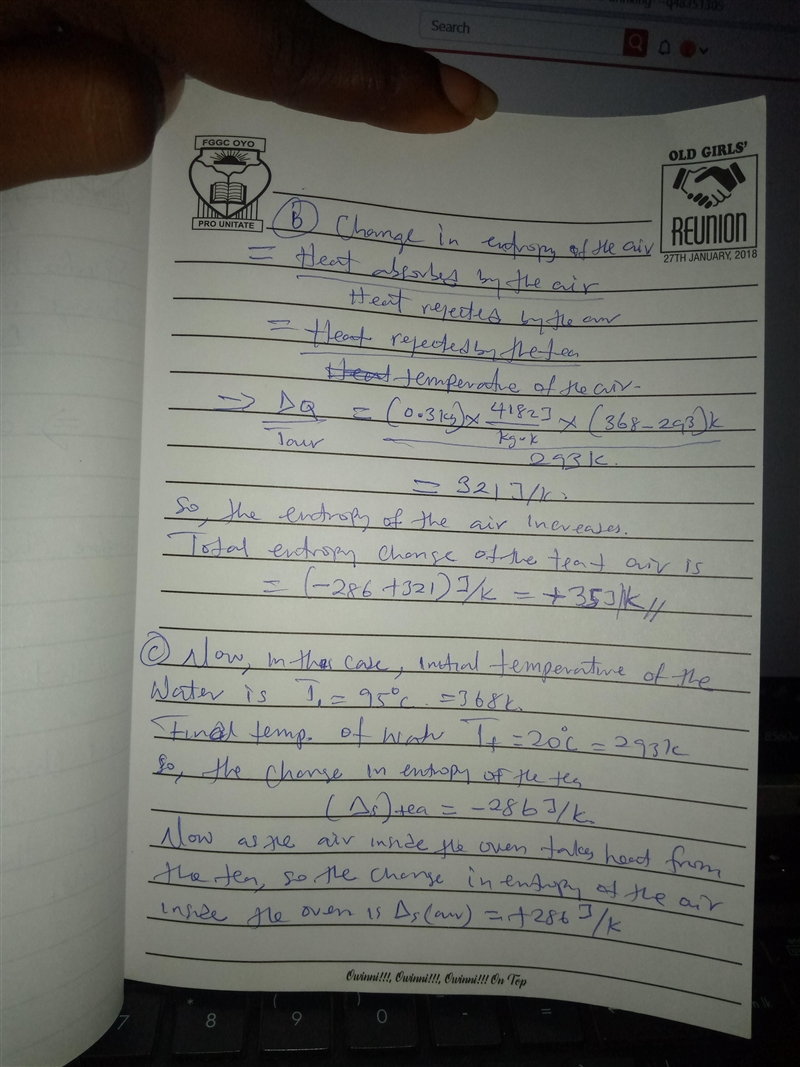 Search
FGGC OYO
PRO UNITATE
OLD GIRLS'
REUNION
27TH JANUARY, 2018
(B) Change in entropy of the air
= Heat absorbed by the air
Heat rejected by the air
= Heat rejected by the tea
temperature of the air.
→ ΔQ/Tair = (0.3kg) × 4182J/kg-k × (368-293)k
293k.
= 321 J/k.
So, the entropy of the air increases.
Total entropy change of the tea + air is
= (-286 + 321) J/k = +35J/k //
(C) Now, in this case, initial temperature of the
Water is T₁ = 95°c = 368k.
Final temp. of water Tf = 20°c = 293k
So, the change in entropy of the tea
(Δs)tea = -286 J/k.
Now as the air inside the oven takes heat from
the tea, so the change in entropy of the air
inside the oven is Δs(air) = +286 J/k
Owinni!!!, Owinni!!!, Owinni!!! On Top
7 8 9 0 - =